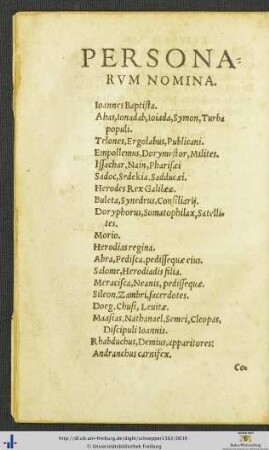 PERSONA=
RVM NOMINA.
Ioannes Baptista.
Ahas, Ionadab, Ioiada, Symon, Turba
populi.
Telones, Ergolabus, Publicani.
Empollemus, Dorymestor, Milites.
Issachar, Nain, Pharisæi
Sadoc, Sedekia, Sadducæi.
Herodes Rex Galilææ.
Buleta, Synedrus, Consiliarij.
Doryphorus, Somatophilax, Satelli-
tes.
Morio.
Herodias regina.
Abra, Pedisca, pedissequæ eius.
Salome, Herodiadis filia.
Meracisca, Neanis, pedissequæ.
Sileon, Zambri, sacerdotes.
Doeg, Chusi, Leuitæ.
Maasias, Nathanael, Semei, Cleopas,
Discipuli Ioannis.
Rhabduchus, Demius, apparitores:
Andranchus carnifex.
Co=
http://dl.ub.uni-freiburg.de/diglit/schoepper1562/0010
© Universitätsbibliothek Freiburg
Baden-Württemberg